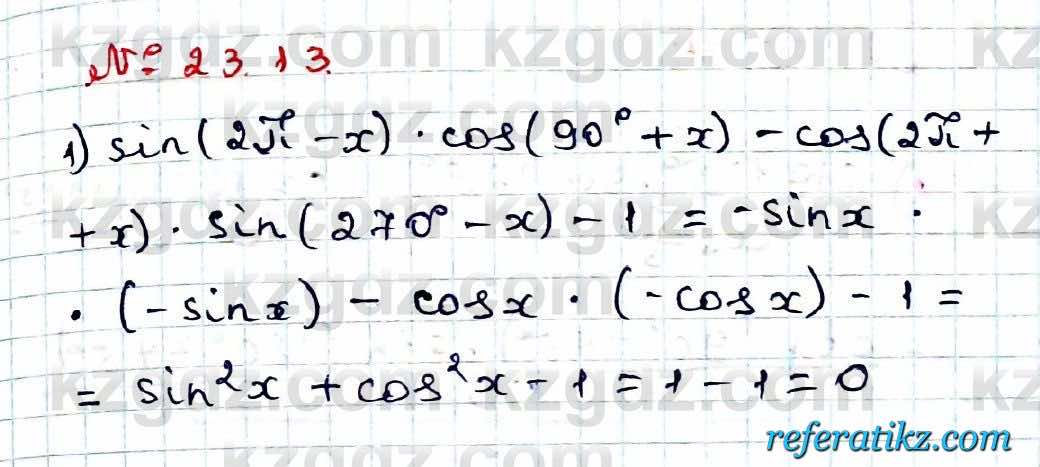 № 23.13.
1) sin(2π - x) · cos(90° + x) - cos(2π +
+ x) · sin(270° - x) - 1 = - sin x ·
· (- sin x) - cos x · (- cos x) - 1 =
= sin²x + cos²x - 1 = 1 - 1 = 0
referatikz.com